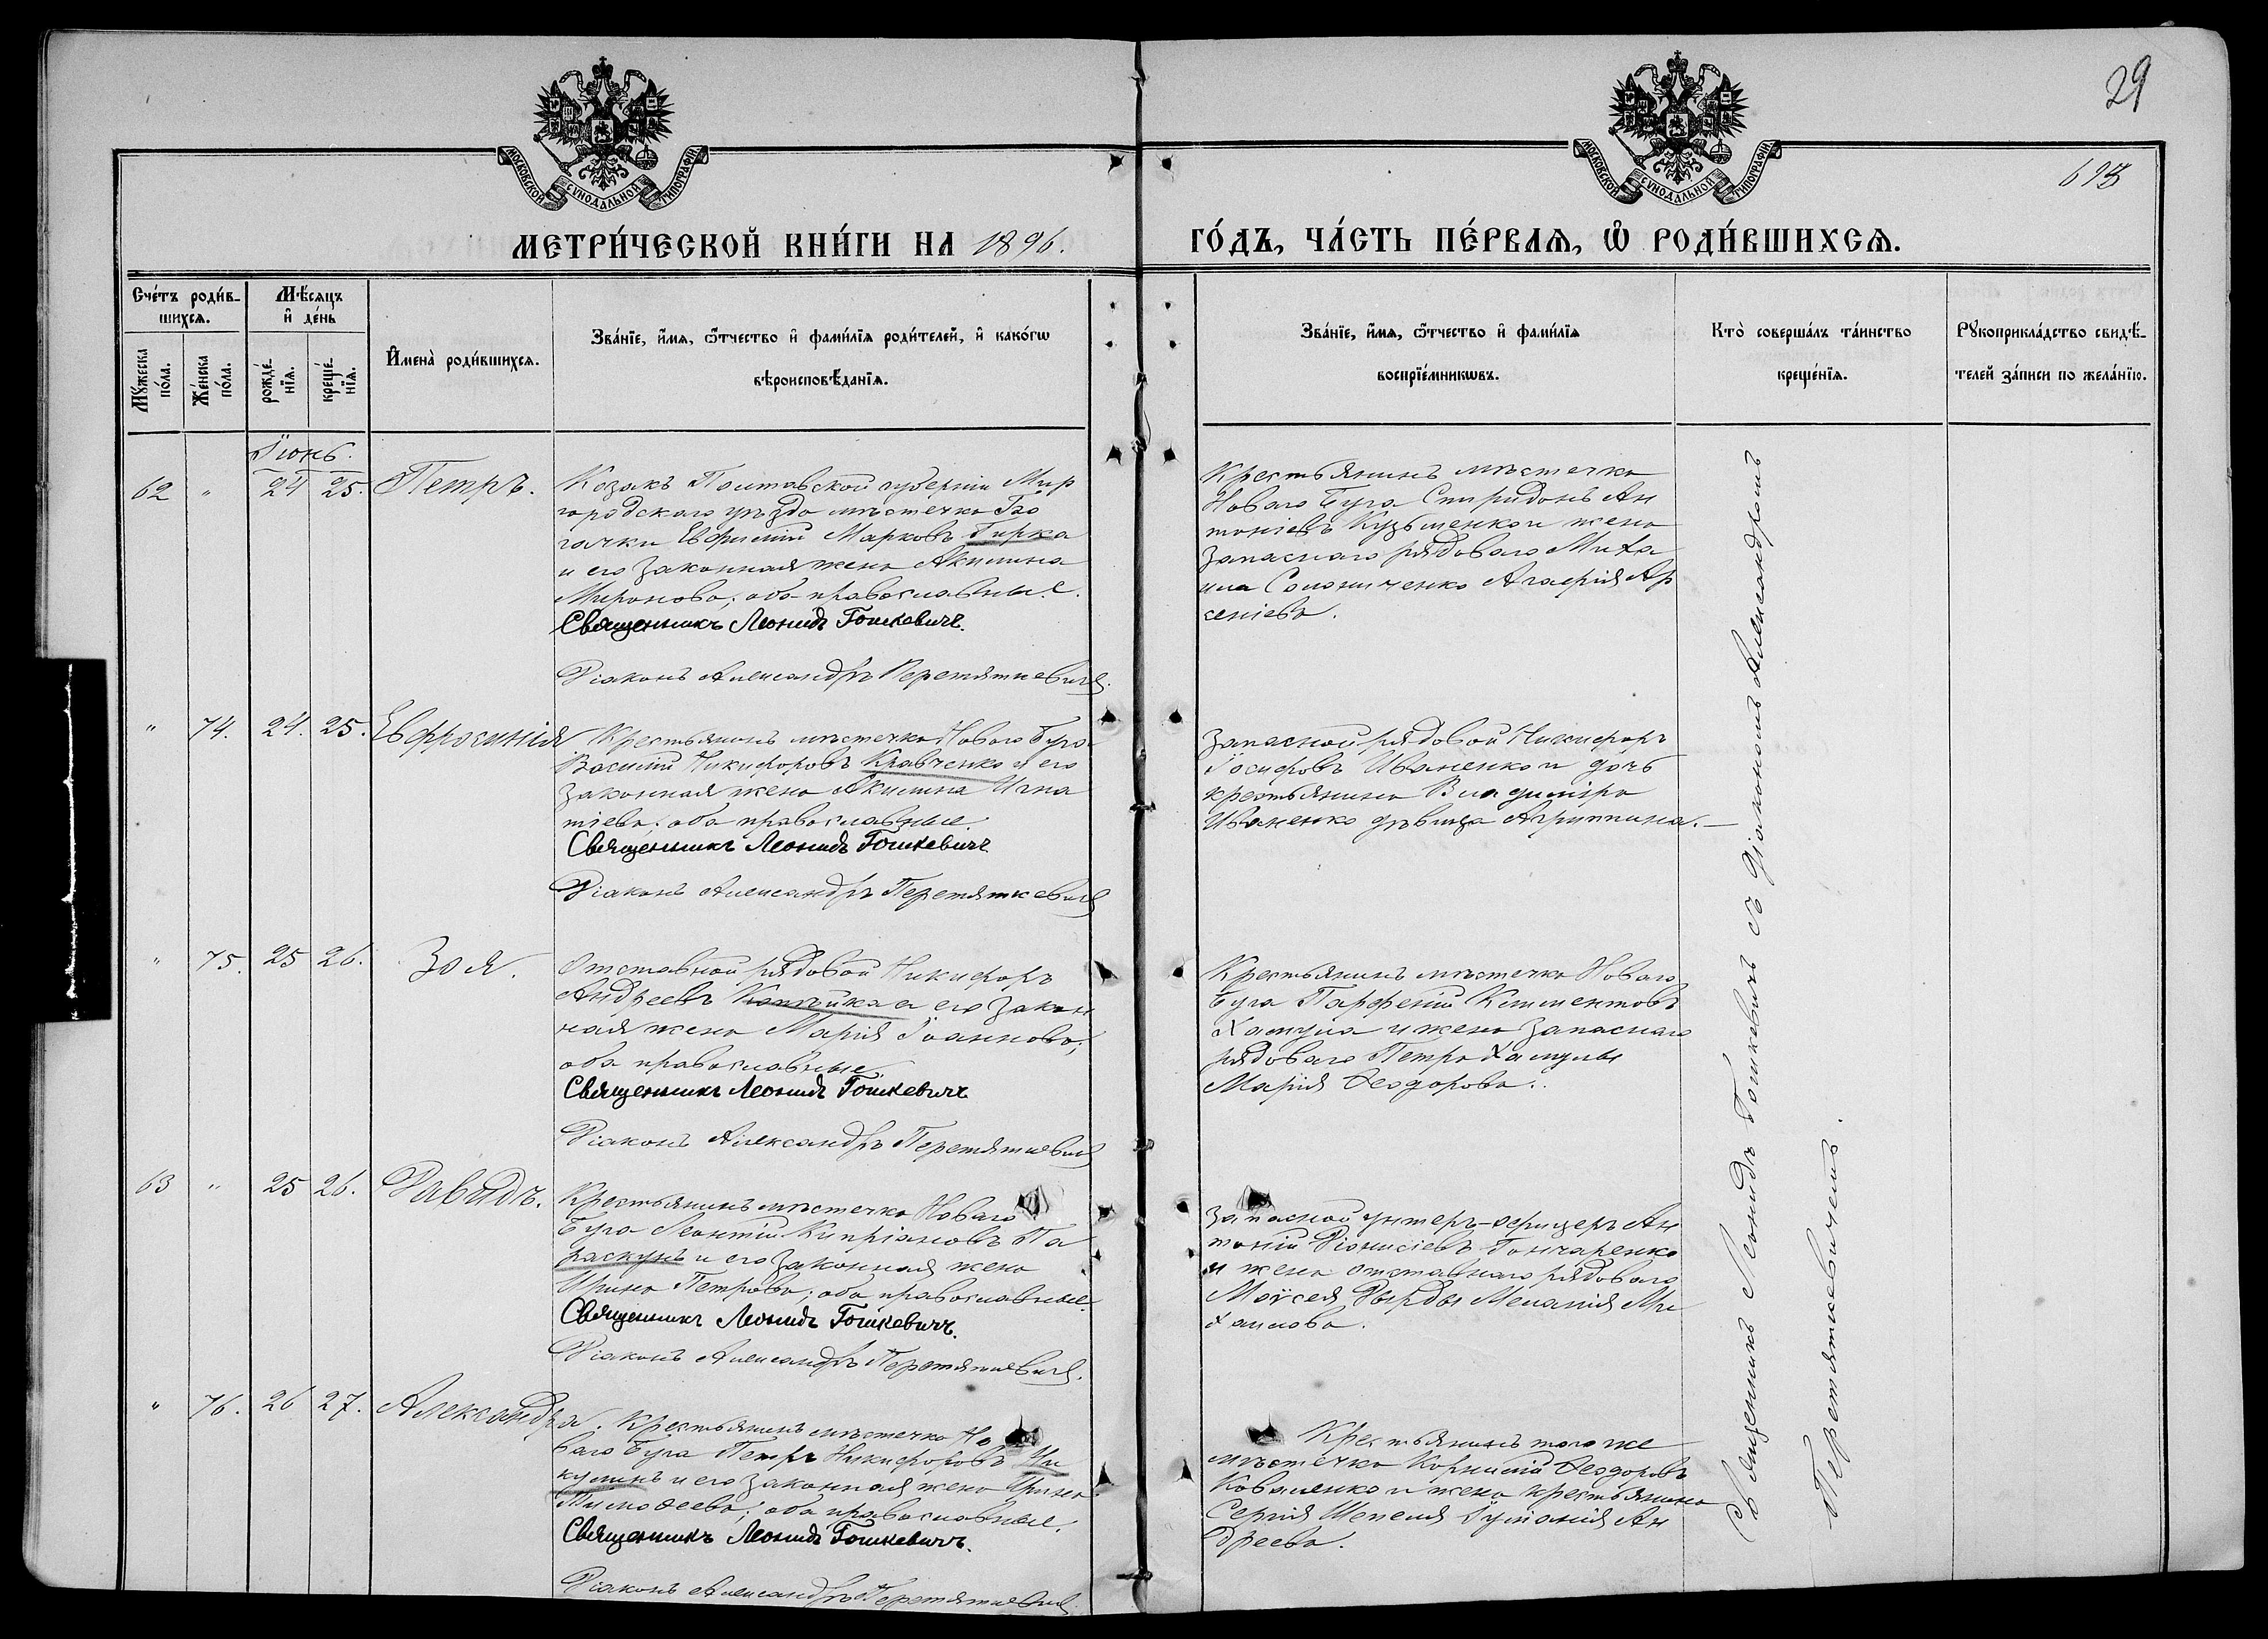 29
693
МОСКОВСКОЙ СѴНОДАЛЬНОЙ ТИПОГРАФІИ
МОСКОВСКОЙ СѴНОДАЛЬНОЙ ТИПОГРАФІИ
МЕТРИ́ЧЕСКОЙ КНИ́ГИ НА 1896.
ГО́ДЪ, ЧА́СТЬ ПЕ́РВАЯ, Ѡ҆ РОДИ́ВШИХСЯ.
Сче́тъ роди́в-
шихся.
Мꙋжеска по́ла.
Же́нска по́ла.
Мѣ́сяцъ
и҆ де́нь
рожде́-
нїя.
креще́-
нїя.
И҆мена̀ роди́вшихся.
Зва́нїе, и҆́мя, ѻ҆́тчество и҆ фами́лїя роди́телей, и҆ како́гѡ
вѣроисповѣ́данїя.
Зва́нїе, и҆́мя, ѻ҆́тчество и҆ фами́лїя
воспрїе́мникѡвъ.
Кто̀ соверша́лъ та́инство
креще́нїя.
Рꙋкоприкла́дство свидѣ́-
телей за́писи по жела́нїю.
Іюнь.
62 " 24 25. Петръ.
Козакъ Полтавской губерніи Мир
городскаго уѣзда мѣстечка Бо
гачки Евфимій Марковъ Гирка
и его законная жена Акилина
Миронова; оба православные.
Священникъ Леонидъ Гошкевичъ.
Діаконъ Александръ Перетяткевичъ.
Крестьянинъ мѣстечка
Новаго Буга Спиридонъ Ан
тоніевъ Кузьменко и жена
запаснаго рядоваго Миха
ила Солониченко Агафія Ар
сеніева.
" 74. 24. 25. Евфросинія
Крестьянинъ мѣстечка Новаго Буга
Василій Никифоровъ Кравченко и его
законная жена Акилина Игна
тіева; оба православные.
Священникъ Леонидъ Гошкевичъ
Діаконъ Александръ Перетяткевичъ
Запасной рядовой Никифоръ
Іосифовъ Иваненко и дочь
крестьянина Владиміра
Иваненко дѣвица Агриппина.
" 75. 25 26. Зоя.
Отставной рядовой Никифоръ
Андреевъ Копѣйка и его закон
ная жена Марія Іоаннова;
оба православные
Священникъ Леонидъ Гошкевичъ
Діаконъ Александръ Перетяткевичъ
Крестьянинъ мѣстечка Новаго
Буга Парфеній Климентовъ
Хамула и жена запаснаго
рядоваго Петра Хамулы
Марія Ѳеодорова.
63 " 25 26. Давидъ.
Крестьянинъ мѣстечка Новаго
Буга Леонтій Кипріановъ Па
раскунъ и его законная жена
Ирина Петрова; оба православные.
Священникъ Леонидъ Гошкевичъ.
Діаконъ Александръ Перетяткевичъ.
Запасной унтеръ-офицеръ Ан
тоній Діонисіевъ Гончаренко
и жена отставнаго рядоваго
Моѵсея Дырды Меланія Ми
хаилова.
" 76. 26 27. Александра.
Крестьянинъ мѣстечка Но
ваго Буга Петръ Никифоровъ
кулинъ и его законная жена Ирина
Тимоѳеева; оба православные.
Священникъ Леонидъ Гошкевичъ.
Діаконъ Александръ Перетяткевичъ
Крестьянинъ того же
мѣстечка Корнилій Ѳеодоровъ
Коваленко и жена крестьянина
Сергія Шепеля Іуліанія Ан
дреева.
Священникъ Леонидъ Гошкевичъ съ Діакономъ Александромъ
Перетяткевичемъ.